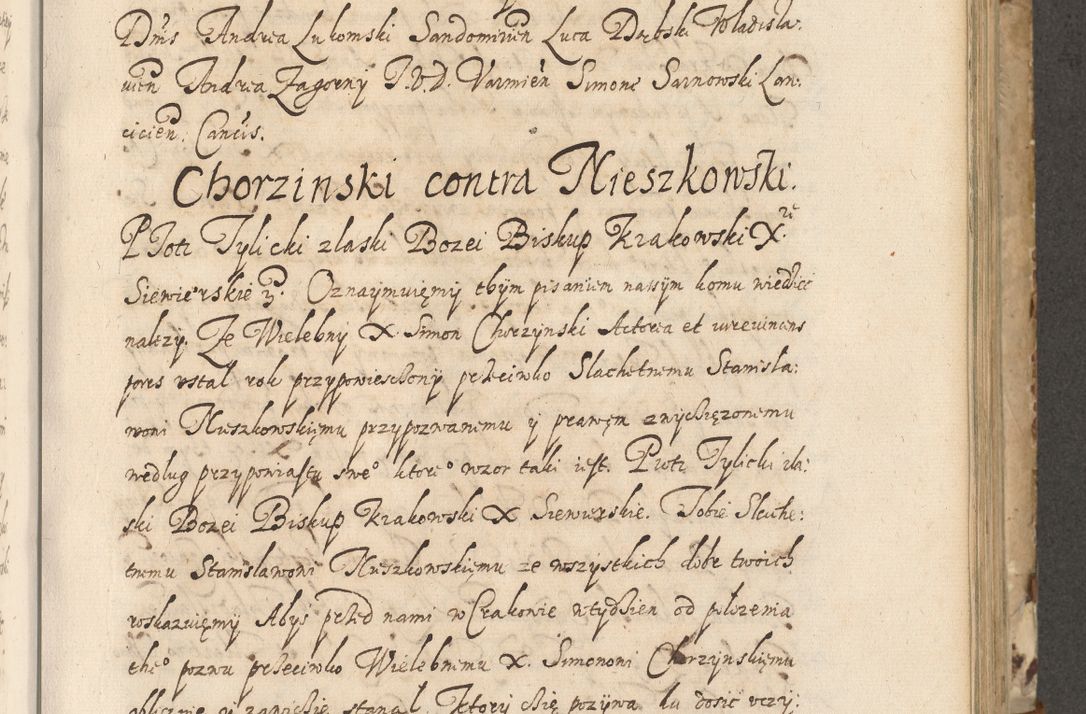 Dns Andrea Lukomski Sandomirien Luca Dębski Wladisla:
vien Andrea Zagorny I.V.D. Varmien Simone Sarnowski Lan:
cicien: Cancis.
Chorzinski contra Nieszkowski.
Piotr Tylicki zlaski Bozei Biskup Krakowski X.
Siewierskie Oznaymuięmy thym pisaniem nassym komu wiedziec
nalezy. Ze Wielebny X. Simon Chorzynski Actorea et
wstal rok przypowiesczony przeciwko Slachetnemu Stanisla:
wowi Nieszkowskięmu przypozwanemu y prawęm zwyciężonemu
według przypowiastu sweo ktoreo wzor taki iest. Piotr Tylicki zla:
ski Bozei Biskup Krakowski X Siewierskie. Tobie Slache:
tnemu Stanislawowi Nieszkowskięmu ze wszystkich dobr twoich
roskazuięmy Abys przed nami w Crakowie wtydzien od polozenia
theo pozwu przeciwko Wielebnemu X. Simonowi Chorzynskięmu
oblicznie y zawicie stanal. Ktory cię pozywa